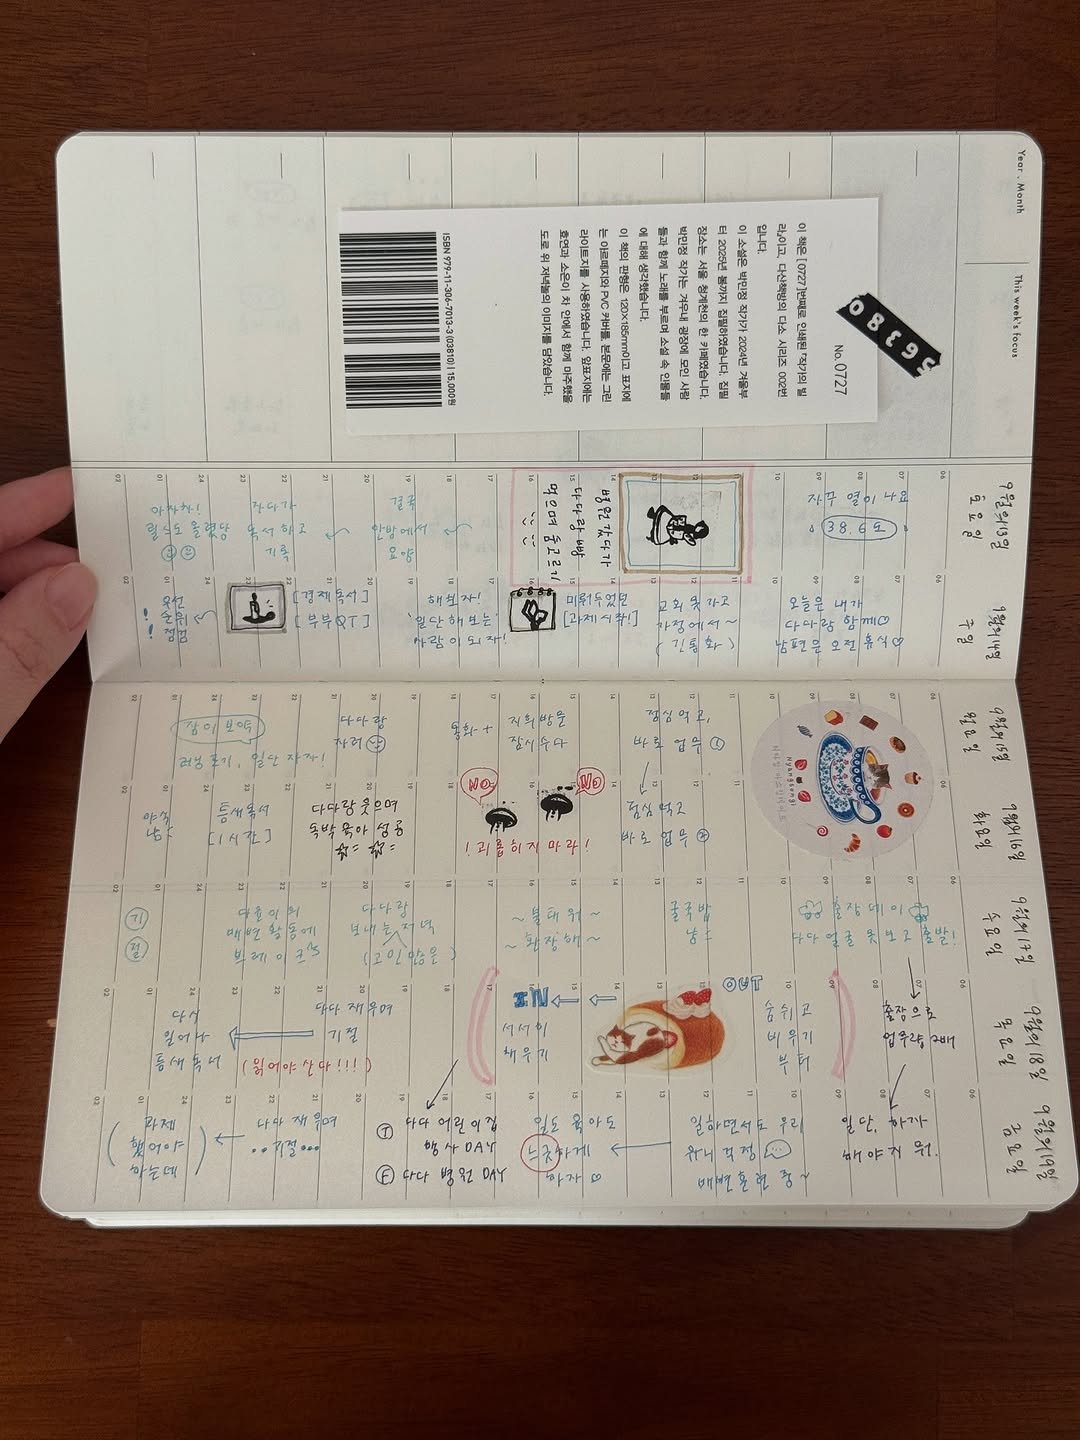 Year . Month
This week's focus
08363
No. 0727
이 책은 [0727]번째로 인쇄된 『작가의 빌
라』이고, 다산책방의 다소 시리즈 002번
입니다.
이 소설은 박민정 작가가 2024년 겨울부
터 2025년 봄까지 집필하였습니다. 집필
장소는 서울 청계천의 한 카페였습니다.
박민정 작가는 겨우내 광장에 모인 사람
들과 함께 노래를 부르며 소설 속 인물들
에 대해 생각했습니다.
이 책의 판형은 120×185mm이고 표지에
는 아르떼지와 PVC 커버를, 본문에는 그린
라이트지를 사용하였습니다. 앞표지에는
호연과 소은이 차 안에서 함께 마주했을
도로 위 저녁놀의 이미지를 담았습니다.
ISBN 979-11-306-7013-3 (03810) | 15,000원
9월의13일
토요일
자꾸 열이 나요
38.6도
병원 갔다가
다다랑 빵
먹으며 숨고르기
결국
안방에서
요양
자다가
독서하고
기록
아차차!
릴스도 올렸당
9월의14일
주일
오늘은 내가
다다랑 함께
남편은 오전 휴식
교회 못가고
가정에서~
(긴통화)
미뤄두었던
[과제시작!]
해보자!
'일단 해보는'
사람이 되자!
[경제독서]
[부부QT]
우선
순위
점검
9월의15일
월요일
점심먹고,
바로 업무
지희방문
잠시수다
통화+
다다랑
자러
잠이 보약
러닝 포기, 일단 자자!
9월의16일
화요일
냥송이
Nyangsongi
점심먹고
바로 업무
NO
NO
!괴롭히지 마라!
다다랑 웃으며
독박 육아 성공
틈새독서
[1시간]
야식
냠
9월의17일
수요일
출장데이
다다 얼굴 못보고 출발!
굴국밥
냠
~불태워~
~환장해~
다다랑
보내는 저녁
(고민많은)
다율이의
배변활동에
브레이크
기
절
9월의18일
목요일
출장으로
업무량 2배
숨쉬고
비우기
부터
OUT
IN
서서히
채우기
다다 재우며
기절
(읽어야산다!!!)
다시
일어나
틈새 독서
9월의19일
금요일
일단, 하자
해야지 뭐.
일하면서도 우리
유니 걱정
배변훈련 중~
일도 육아도
느긋하게
하자
T 다다 어린이집
행사DAY
F 다다 병원 DAY
다다 재우며
..기절...
과제
했어야
하는데